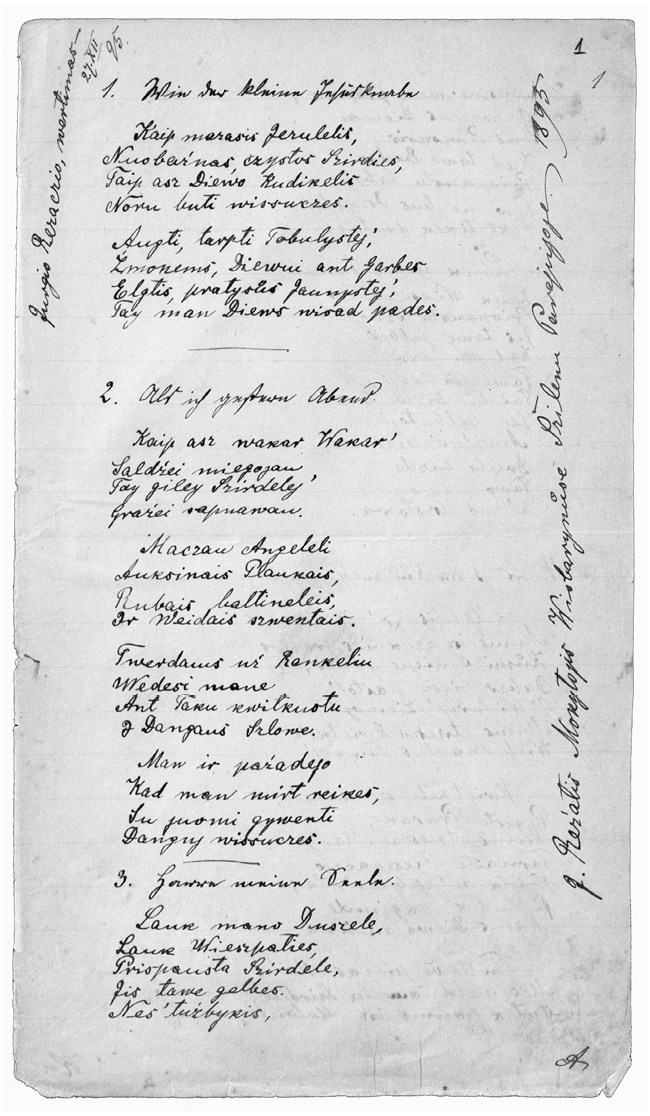 1
1
Jurgio Rėzaczio, wertimas—
27.XII
95.
1. Wie der kleine Jesusknabe
Kaip mazasis Jezulelis,
Nuobaźnas, czystos Szirdies,
Taip asz Diewo Kudikelis
Noru buti wissuczes.
Augti, tarpti Tobulystej',
Zmonems, Diewui ant Garbes
Elgtis, pratysūs Jaunystej',
Tay man Diews wisad pades.
2. Als ich gestern Abend
Kaip asz wakar Wakar'
Saldźei miegojau,
Tay giley Szirdelej'
Graźei sapnawau.
Maczau Angeleli
Auksinais Plaukais,
Rubais baltineleis,
Ir Weidais szwentais.
Twerdams uź Rankeliu
Wedesi mane
Ant Taku kwitkuotu
I Dangaus Szlowe.
Man ir paźadejo
Kad man mirt reikes,
Su juomi gywenti
Danguj wissuczes.
3. Harre meine Seele.
Lauk mano Duszele,
Lauk Wieszpaties,
Prispausta Szirdele,
Jis tawe gelbes.
Nes' tuźbykis,
J. Reźatis Mokytojis Kisbarynůse Szilenu Parapijoje 1895
A